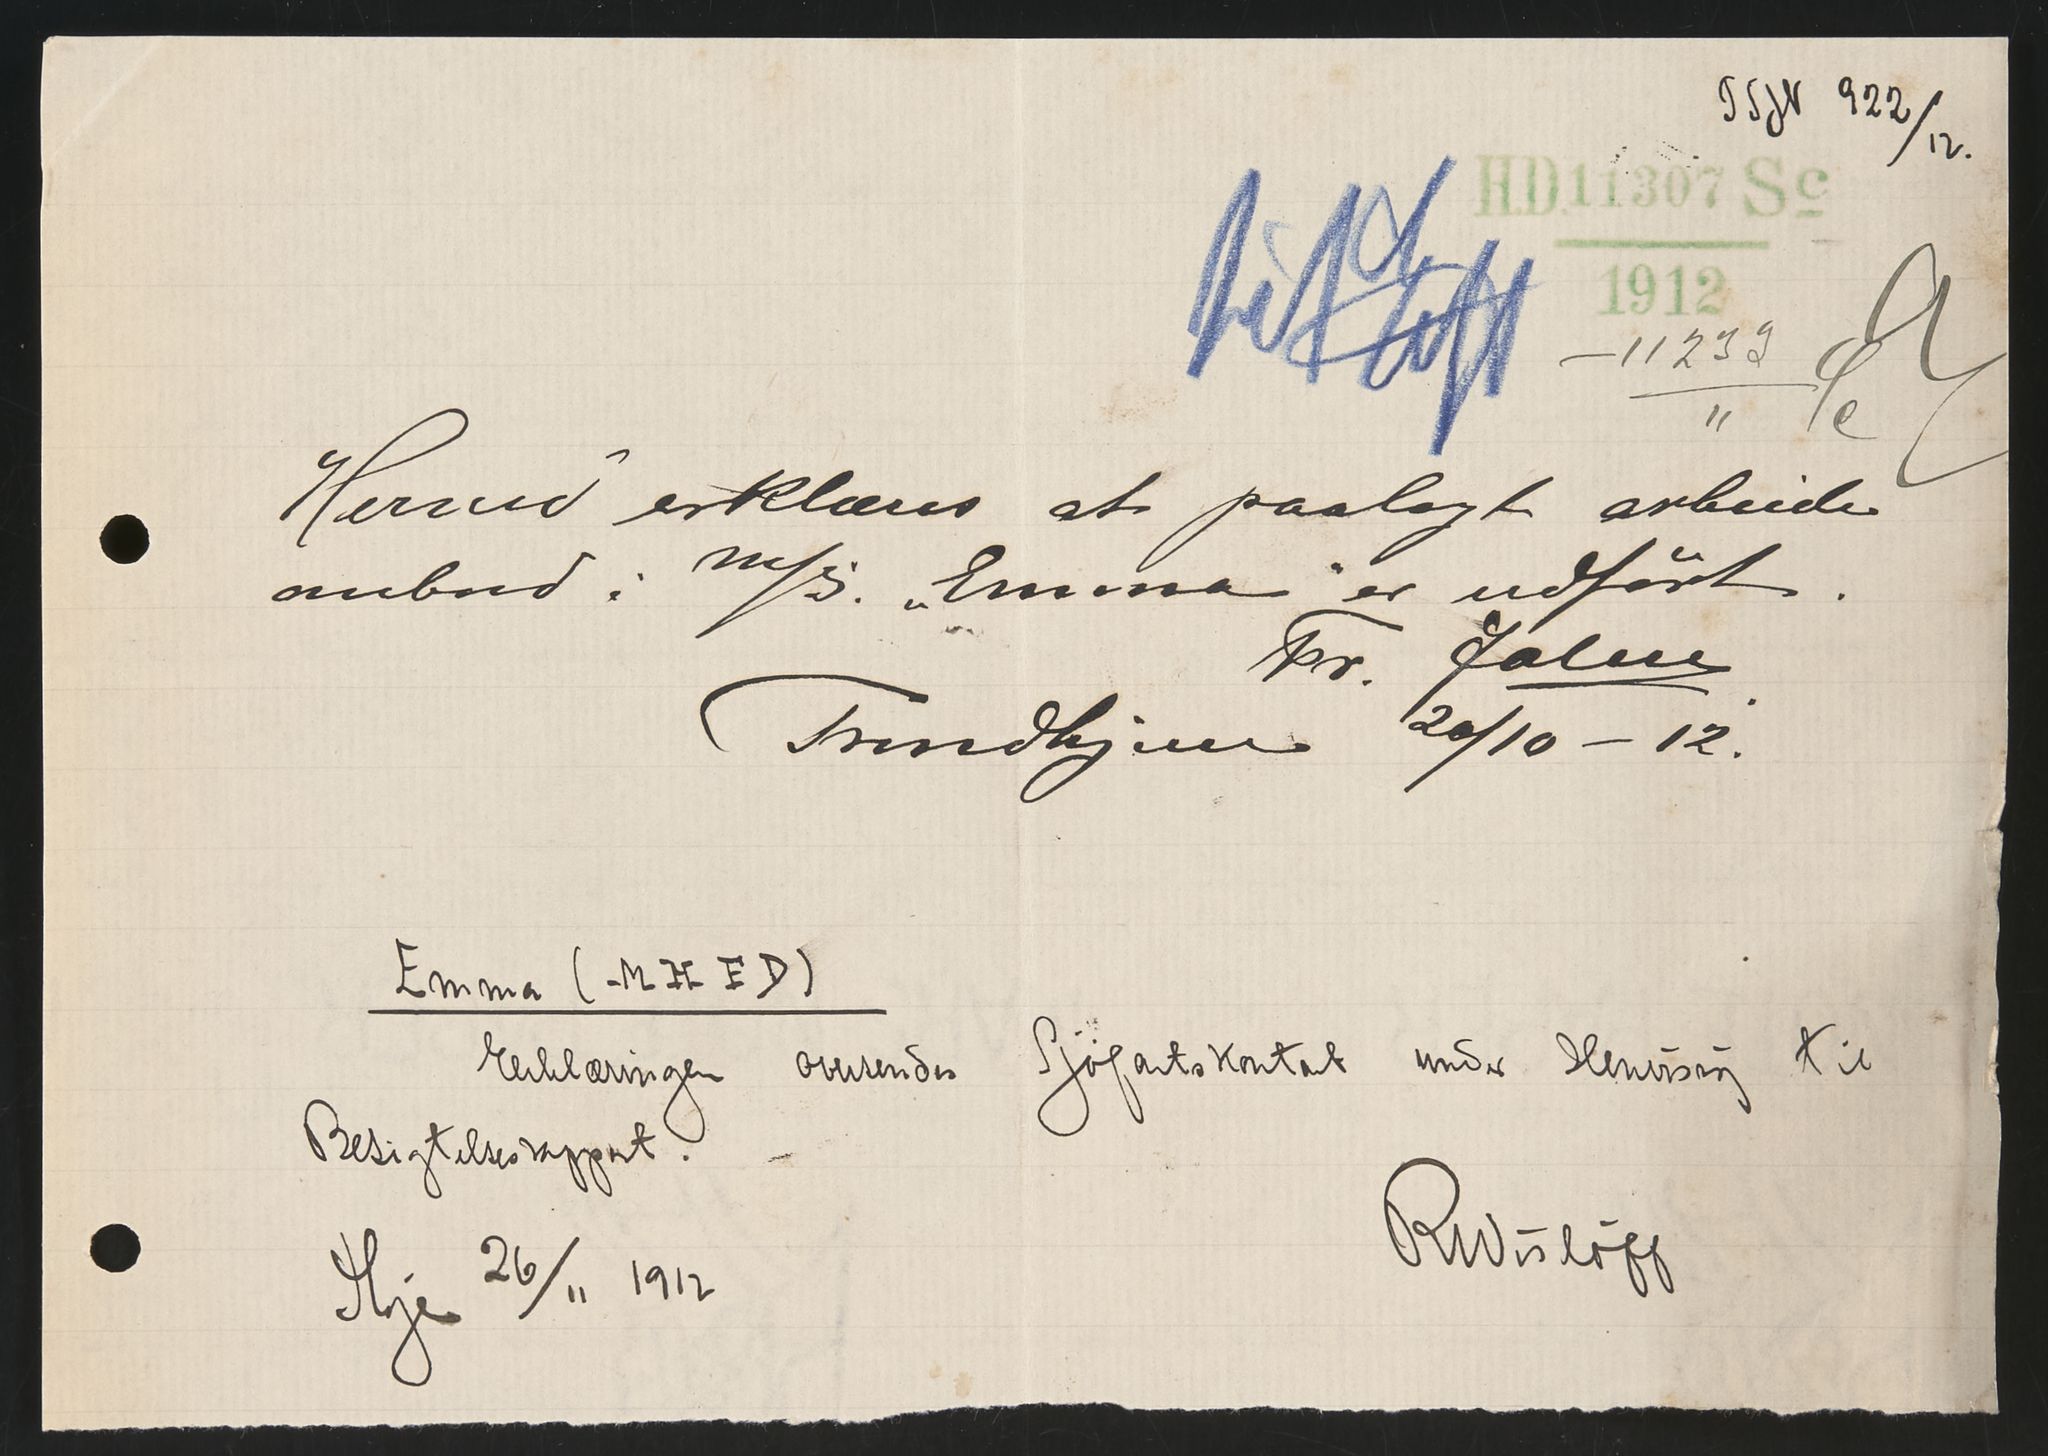 TSJN 922/12.
H.D. 11307 Sc
1912
– 11233
11
Herved erklæres at paalagt arbeide
ombord i M/S. „Emma" er udført.
Fr. Jalm
Trondhjem 20/10 – 12.
Emma (MHED)
Erklæringen oversendes Sjöfartskontoret under Henvisng til
Besigtelsesrapport.
26/11 1912
RWislöff